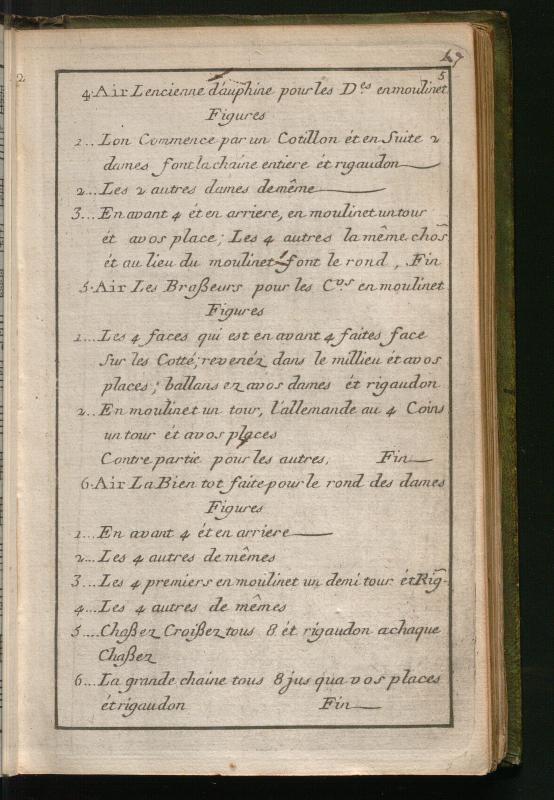 67
5
4. Air Lencienne d'auphine pour les D.es en moulinet
Figures
1... Lon Commence par un Cotillon ét en Suite 2
dames font la chaine entiere ét rigaudon
2... Les 2 autres dames de même
3... En avant 4 ét en arriere, en moulinet un tour
ét avos place; Les 4 autres la même chos
ét au lieu du moulinet font le rond, Fin
5. Air Les Braßeurs pour les C.vrs en moulinet
Figures
1... Les 4 faces qui est en avant 4 faites face
Sur les Cotté; revenéz dans le millieu ét avos
places; ballans ez avos dames ét rigaudon
2.. En moulinet un tour, l'allemande au 4 Coins
un tour ét avos places
Contre partie pour les autres, Fin
6. Air La Bien tot faite pour le rond des dames
Figures
1... En avant 4 ét en arriere
2... Les 4 autres de mêmes
3... Les 4 premiers en moulinet un demi tour ét Rig.
4... Les 4 autres de mêmes
5.... Chaßez Croißez tous 8 ét rigaudon a chaque
Chaßez
6... La grande chaine tous 8 jus qua vos places
ét rigaudon Fin